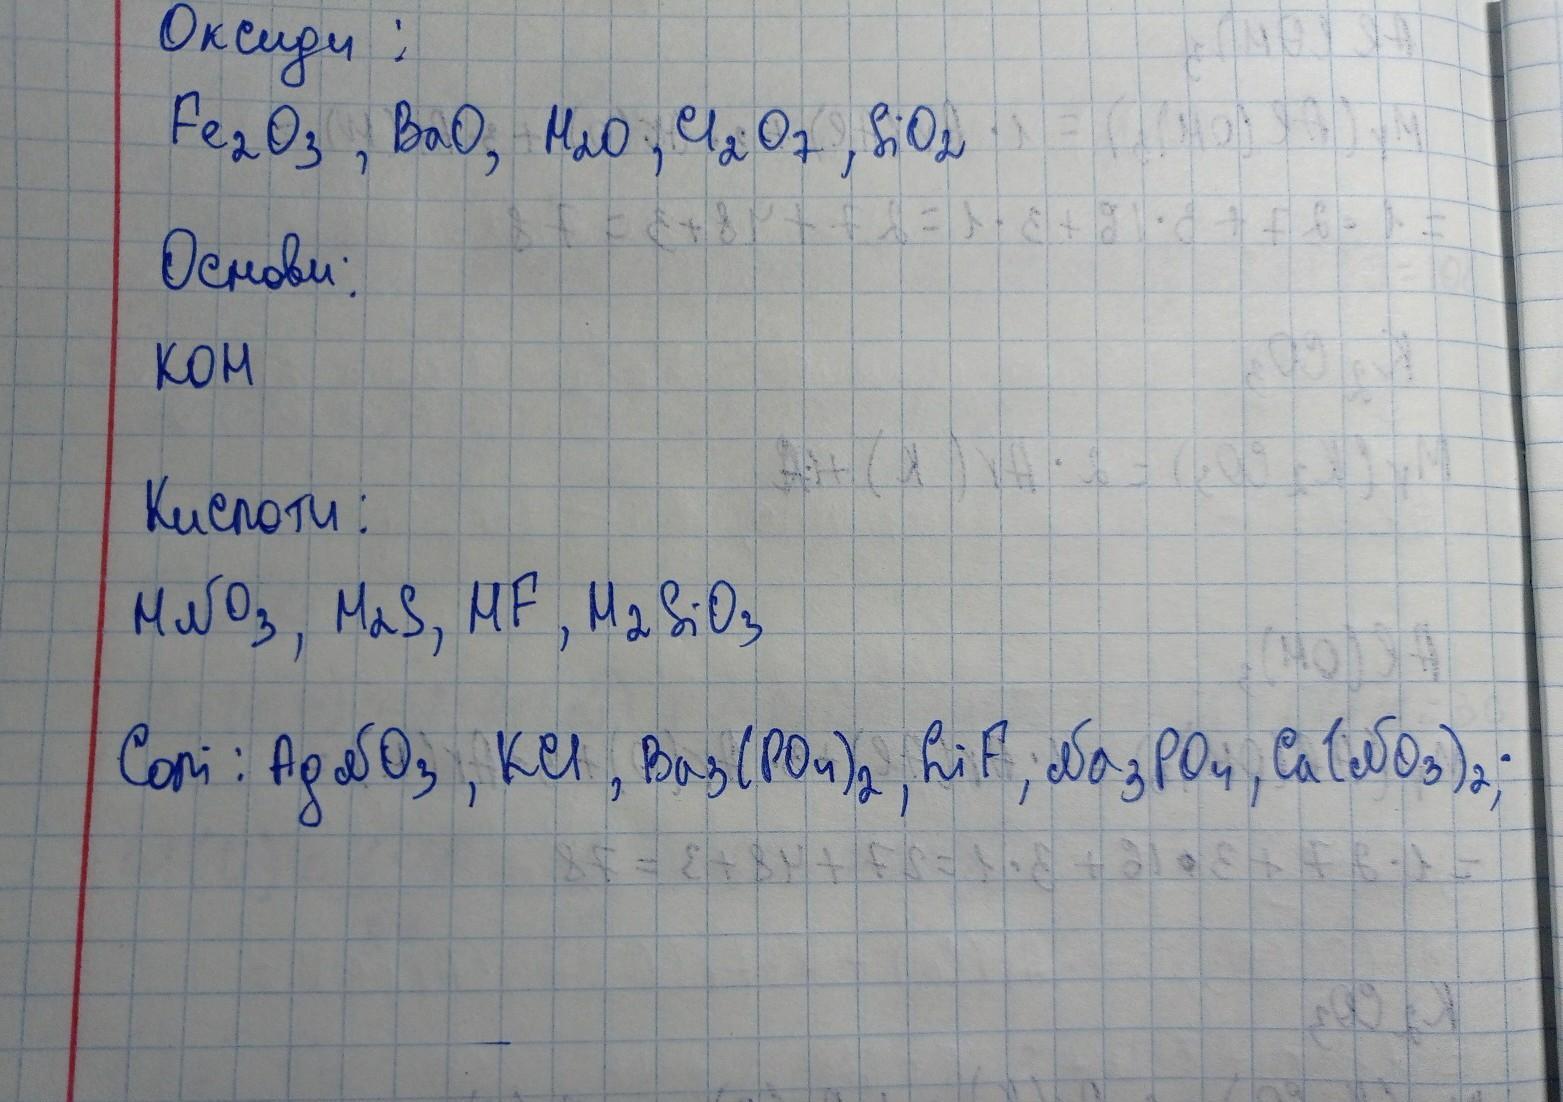 Оксиди :
Fe₂O₃, BaO, H₂O, Cl₂O₇, SiO₂
Основи:
KOH
Кислоти:
HNO₃, H₂S, HF, H₂SiO₃
Солі: AgNO₃, KCl, Ba₃(PO₄)₂, LiF, Na₃PO₄, Ca(NO₃)₂;